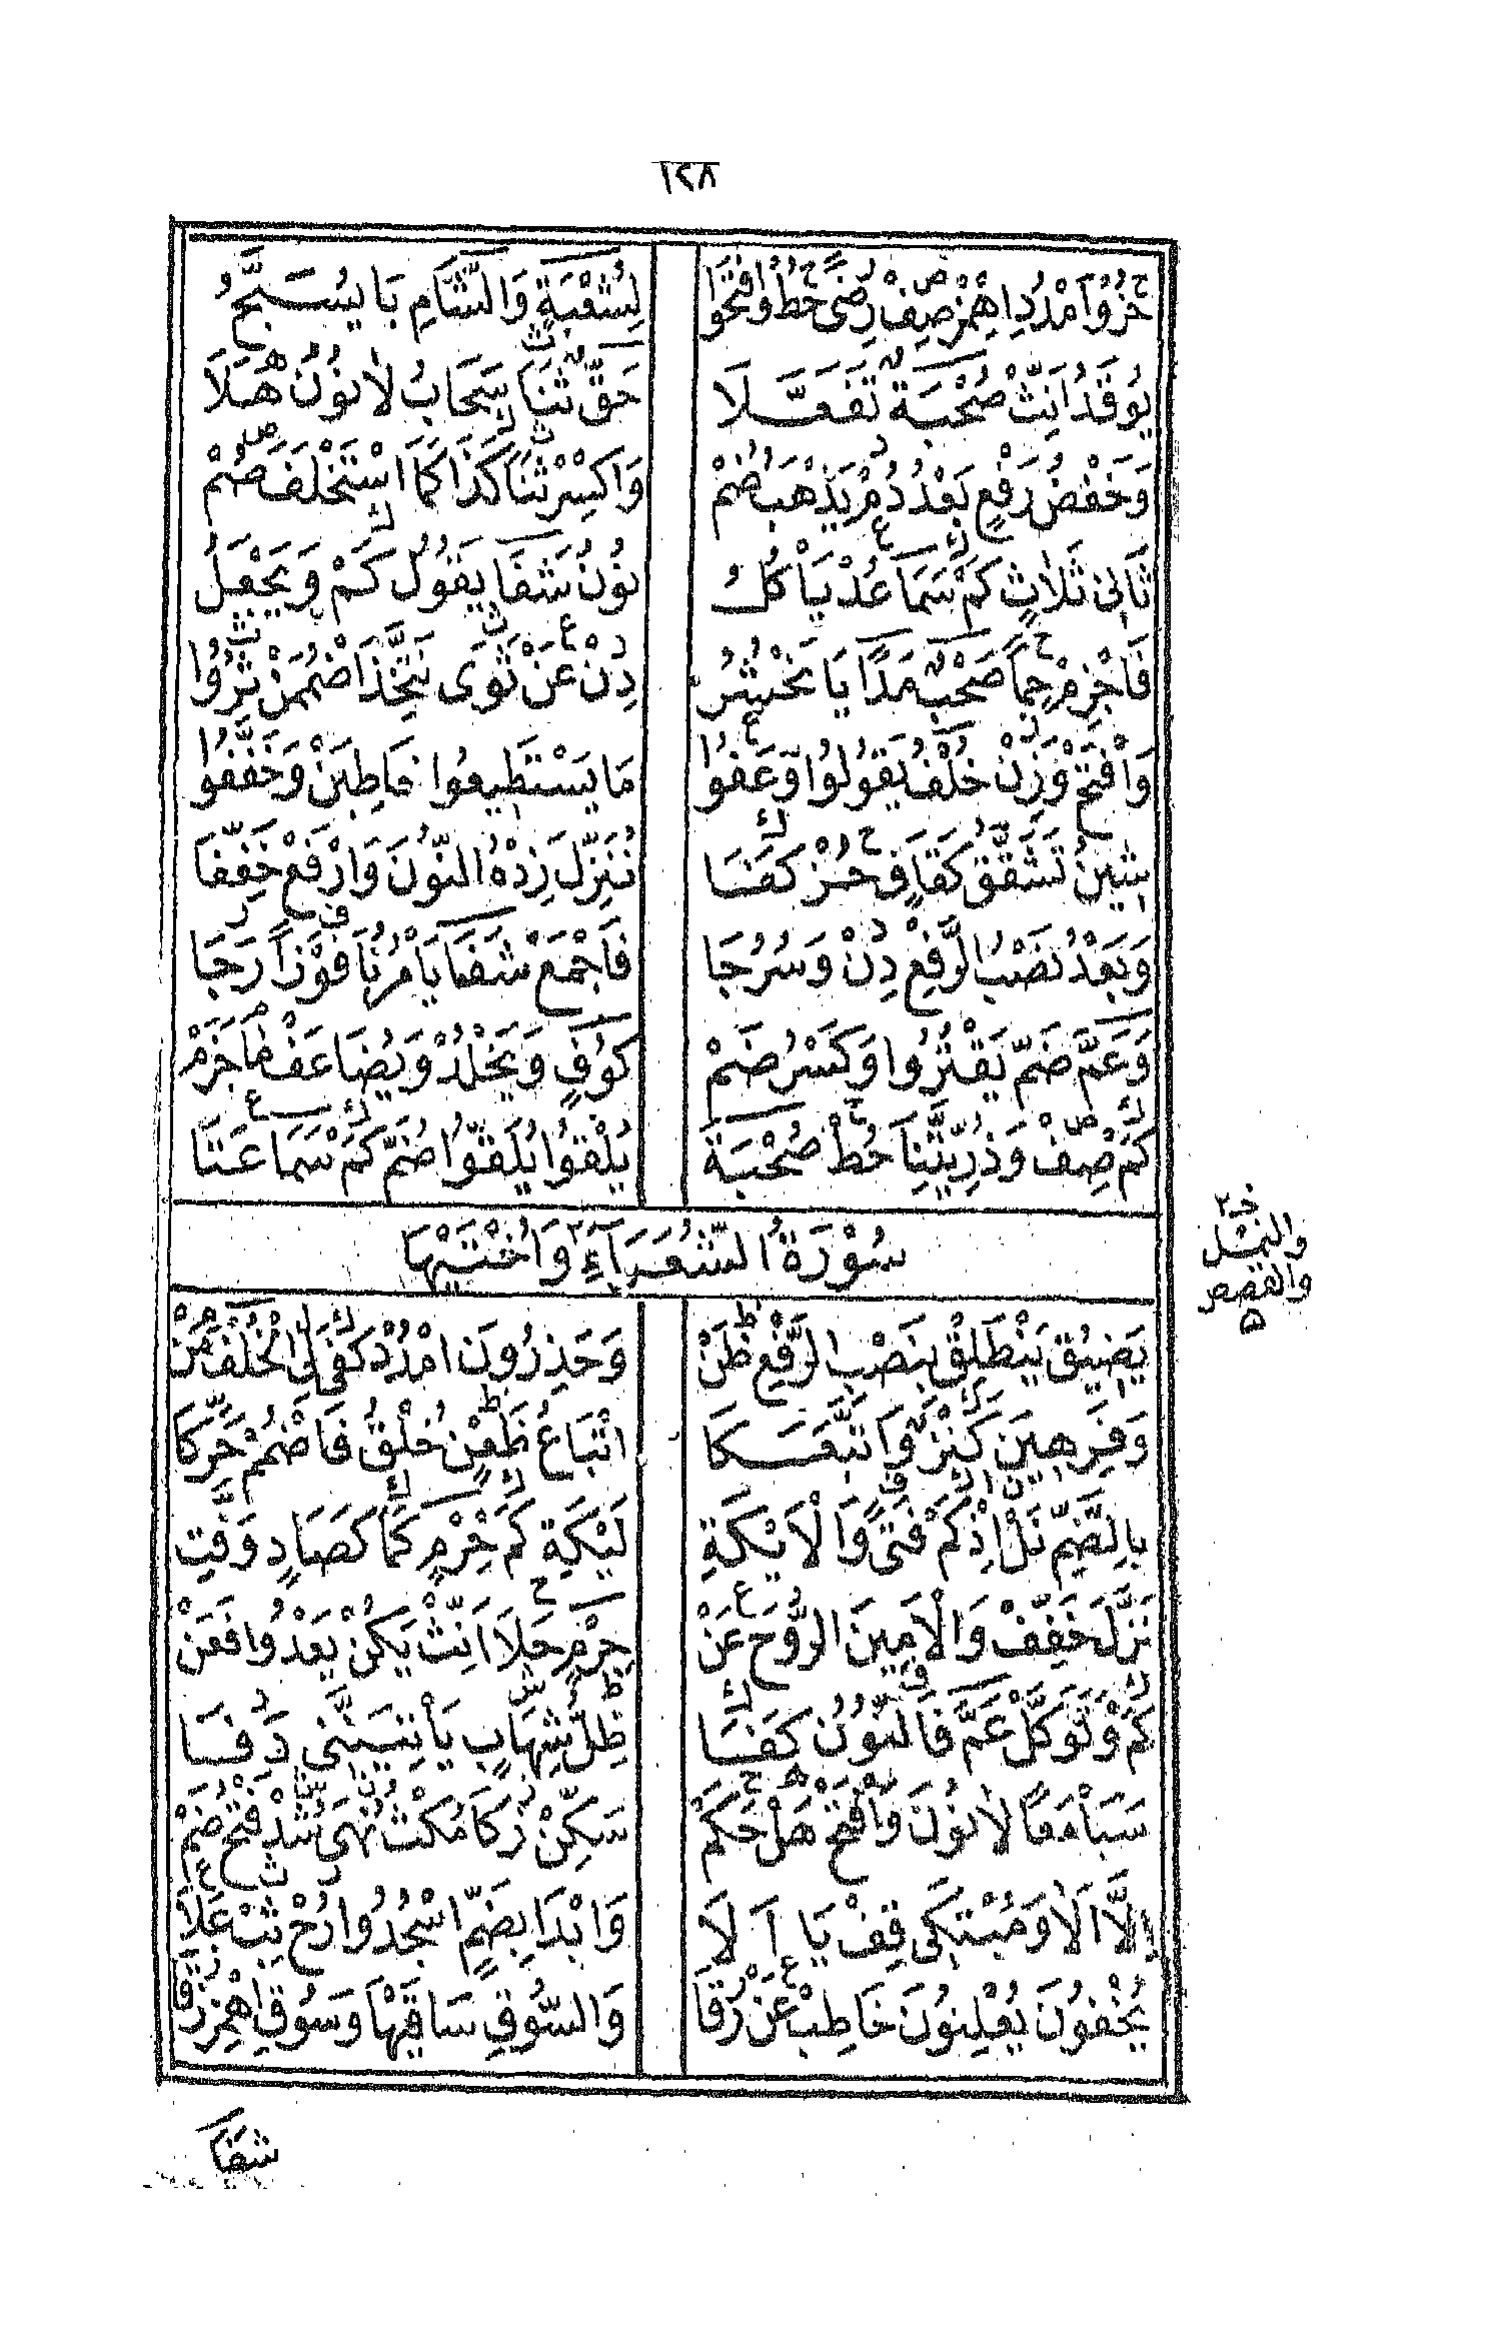 ١٢٨
حُزْ وَامْدُدِ اهْمِزْ صِفْ رِضًى حُطْ وَافْتَحُوا لِشُعْبَةٍ وَالشَّامِ بَا يُسَبِّحُ
يُوقَدُ اَنِّثْ صُحْبَةٌ تَفَعَّلَا حَقٌّ ثَنَا سَحَابُ لَا نُونُ هَلَا
وَخَفْضُ رَفْعٍ بَعْدُ دُمْ يَذْهَبُ ضُمْ وَاكْسِرْ ثَنَا كَذَا كَمَا اسْتُخْلِفَ صُمْ
ثَانِى ثَلَاثٍ كَمْ سَمَا عُدْ يَاْكُلُ نُونُ شَفَا يَقُولُ كَمْ وَيَجْعَلُ
فَاجْزِمْ حِمًا صَحْبٌ مَدًا يَا نَحْشُرُ دِنْ عَنْ ثَوَى نَتَّخِذَ اضْمُمَنْ ثُرُوا
وَافْتَحْ وَزِنْ خُلْفُ يَقُولُوا وَعَفُوا مَا يَسْتَطِيعُوا خَاطِبَنْ وَخَفِّفُوا
شِينُ تَشَقَّقُ كَقَافٍ حُزْ كَفَا نُنَزِّلُ زِدْهُ النُّونَ وَارْفَعْ خَفِّفَا
وَبَعْدُ نَصْبُ الرَّفْعِ دِنْ وَسُرُجَا فَاجْمَعْ شَفَا يَاْمُرُنَا فَوْزًا رَجَا
وَعَمَّ ضَمُّ يَقْتُرُوا وَكَسْرُ ضَمْ كُوفٍ وَيَخْلُدْ وَيُضَاعَفْ مَا جَزَمْ
كَمْ صِفْ وَذُرِّيَّتِنَا حُطْ صُحْبَةَ يُلْقَوْا يُلَقَّوْا ضُمَّ كَمْ سَمَا عَتَا
سُوْرَةُ الشُّعَرَاۤءِ وَاُخْتَيْهَا
خـ ٢
والنمل
والقصص
يَضِيقُ يَنْطَلِقُ بِنَصْبِ الرَّفْعِ ظَنْ وَحَذِرُونَ امْدُدْ كَفَى لِى الْخُلْفُ مَنْ
وَفَرِهِينَ كَنْزٌ وَاتَّبَعَكَا اَتْبَاعُ ظَعْنٌ خُلْقُ فَاضْمُمْ حَرِّكَا
بِالضَّمِّ نَلْ اِذْ كَمْ فَتًى وَالْاَيْكَةِ لَيْكَةَ كَمْ حِرْمٍ كَمَا كَصَادٍ وَقِّتِ
نَزَّلَ خَفِّفْ وَالْاَمِينَ الرُّوحَ عَنْ حِرْمٍ حَلَا اَنِّثْ يَكُنْ بَعْدُ وَافَعَنْ
كَمْ وَتَوَكَّلْ عَمَّ فَا نُونُ كَفَا ظِلُّ شِهَابٍ يَاْتِيَنَّنِى دَفَا
سَبَاْ مَعًا لَا نُونَ وَافْتَحْ هَلْ حَكَمْ سَكِّنْ زَكَا مَكُثَ نُهًى شُدْ فَتْحُ ضَمْ
اِلَّا اَلَا وَمُبْتَلًى قِفْ يَا اَ لَا وَابْدَا بِضَمِّ اسْجُدُوا رُحْ ثِبْ غَلَا
يُخْفُونَ يُعْلِنُونَ خَاطِبْ عَنْ رَقَا وَالسُّوقِ سَاقَيْهَا وَسُوقِ اهْمِزْ زَقَا
شَفَا